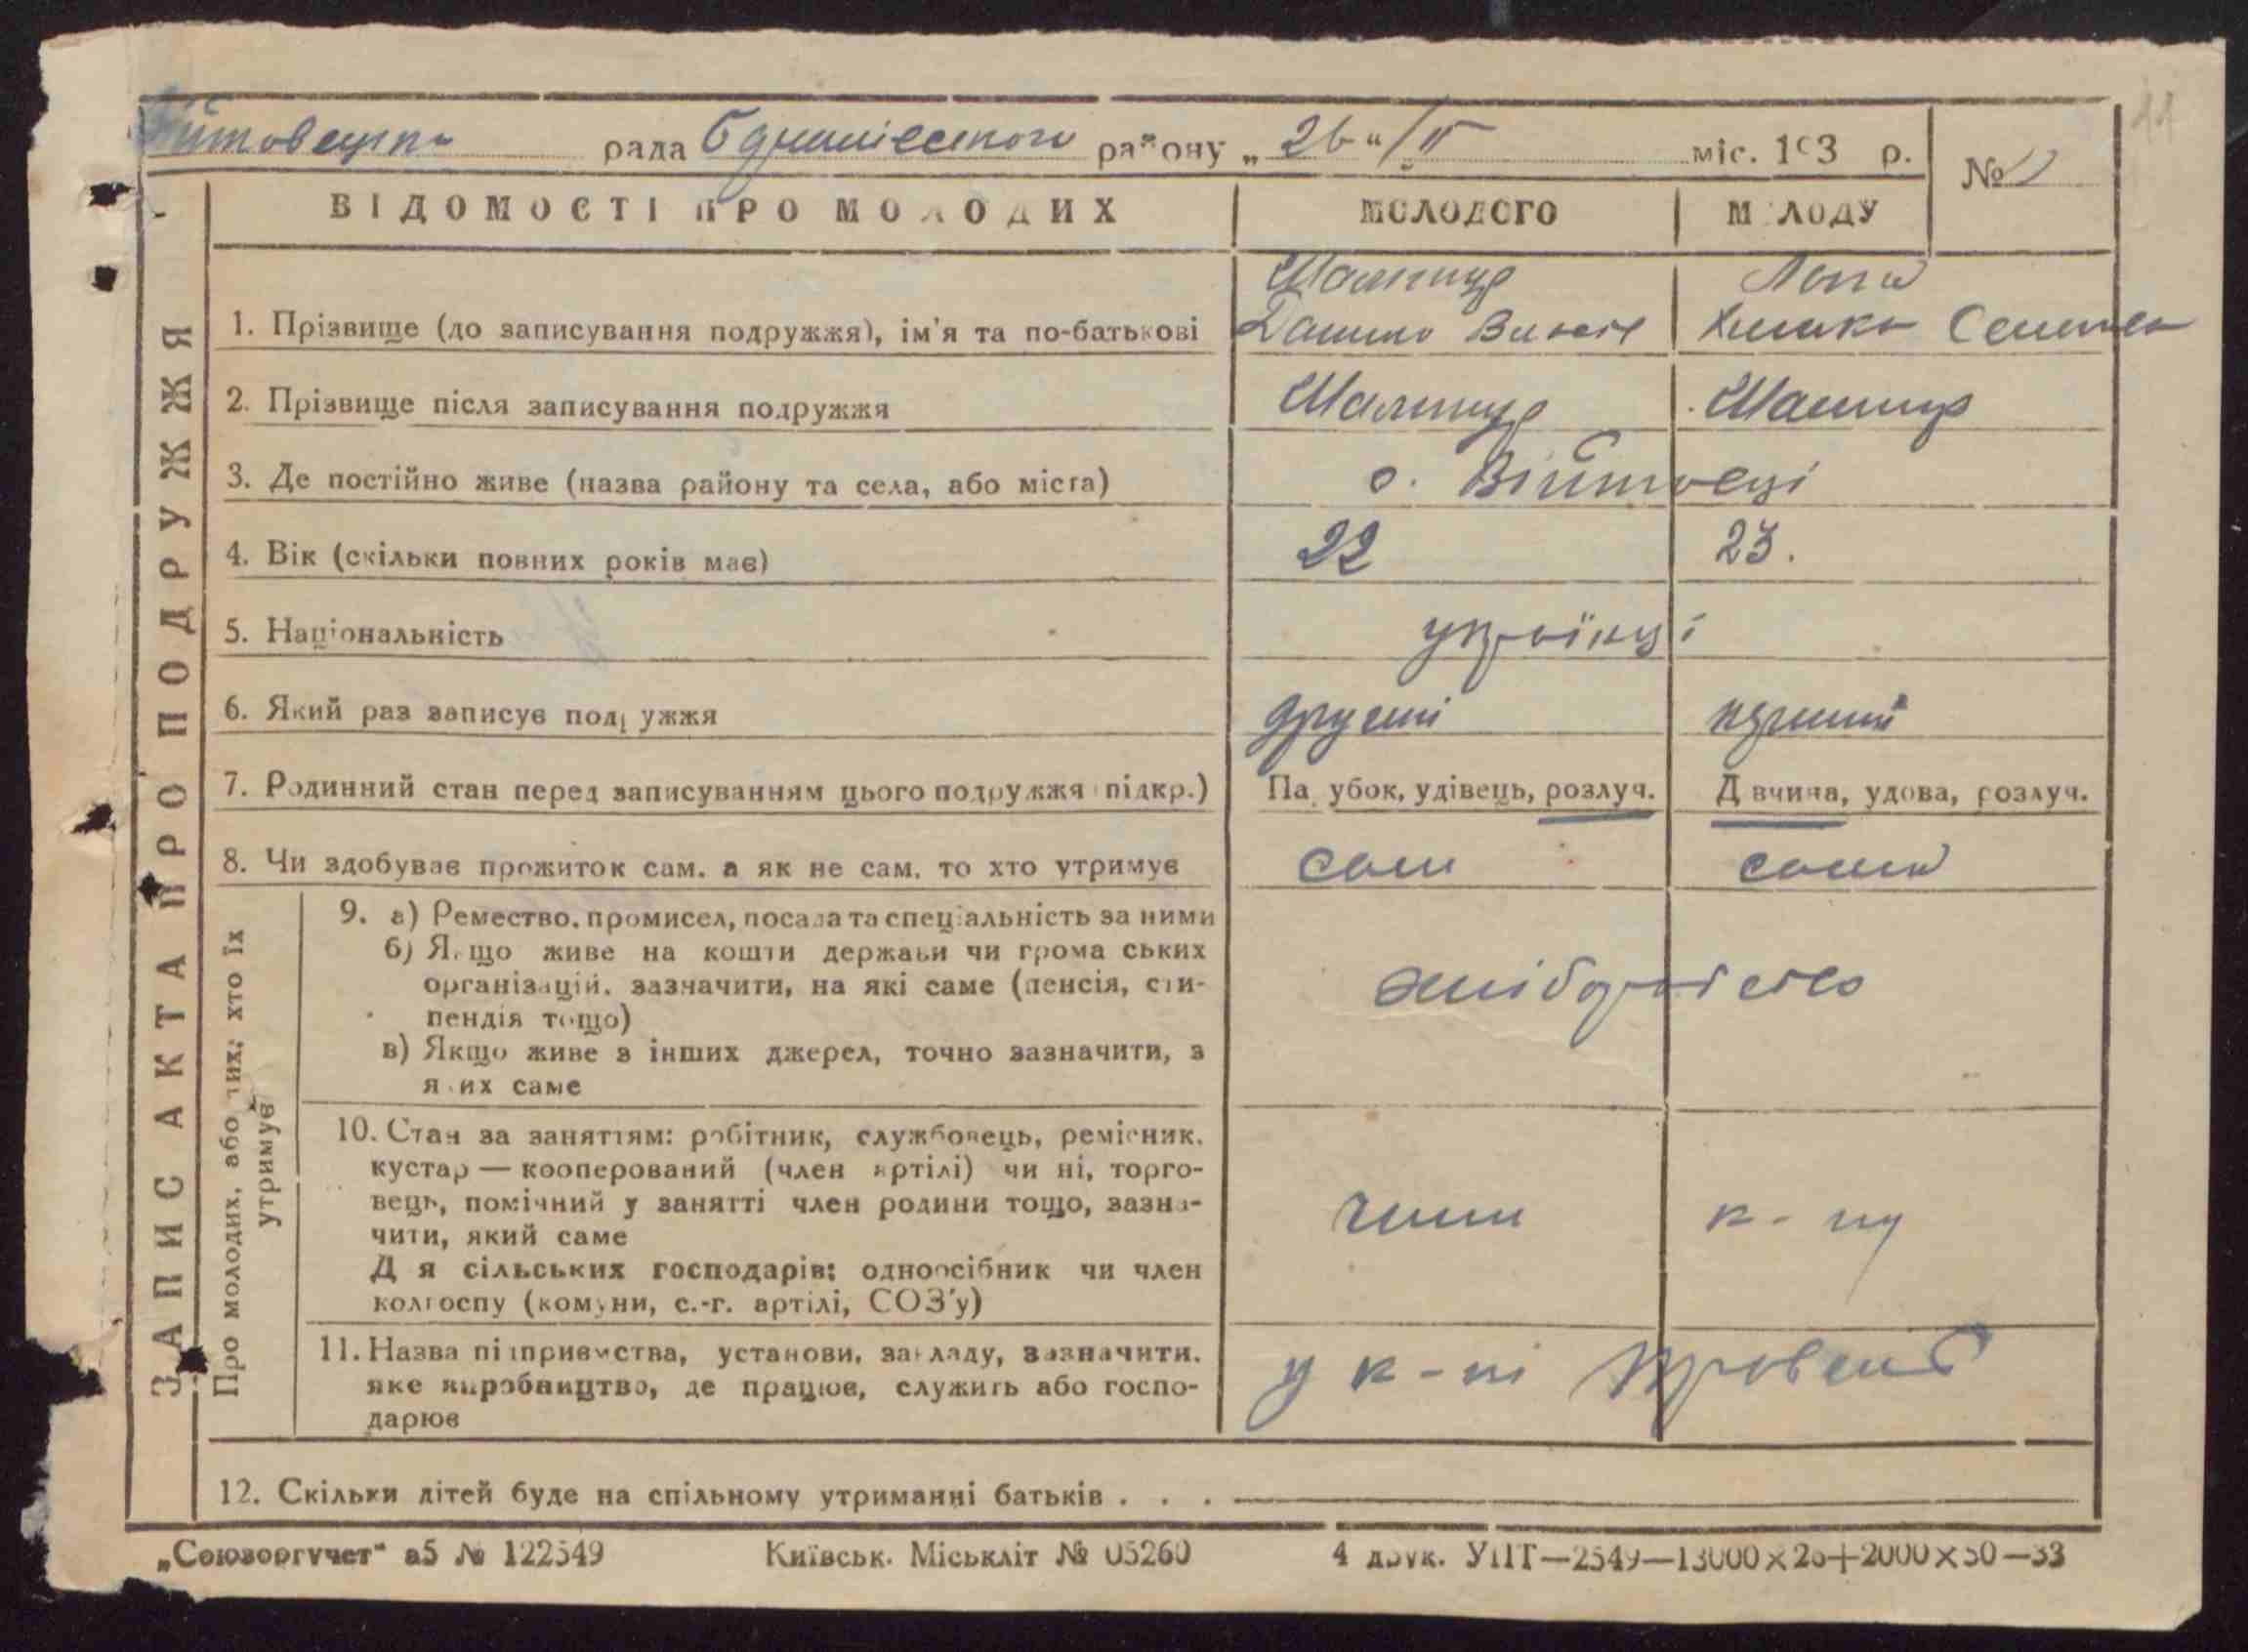 рада району „ 26 " / II міс. 193 р.
№
ВІДОМОСТІ ПРО МОЛОДИХ МОЛОДОГО МОЛОДУ
ЗАПИС АКТА ПРО ПОДРУЖЖЯ
1. Прізвище (до записування подружжя), ім'я та по-батькові Данило
2. Прізвище після записування подружжя
3. Де постійно живе (назва району та села, або міста) с. Війтовці
4. Вік (скільки повних років має) 22 23.
5. Національність українці
6. Який раз записує подружжя другий перший
7. Родинний стан перед записуванням цього подружжя (підкр.) Парубок, удівець, розлуч. Дівчина, удова, розлуч.
8. Чи здобуває прожиток сам, а як не сам, то хто утримує сам сама
Про молодих, або тих, хто їх утримує
9. а) Ремество, промисел, посада та спеціальність за ними
б) Якщо живе на кошти держави чи громадських
організацій, зазначити, на які саме (пенсія, сти-
пендія тощо)
в) Якщо живе з інших джерел, точно зазначити, з
яких саме
хліборобство
10. Стан за заняттям: робітник, службовець, ремісник,
кустар — кооперований (член артілі) чи ні, торго-
вець, помічний у занятті член родини тощо, зазна-
чити, який саме
Для сільських господарів: одноосібник чи член
колгоспу (комуни, с.-г. артілі, СОЗ'у)
член к-пу
11. Назва підприємства, установи, закладу, зазначити,
яке виробництво, де працює, служить або госпо-
дарює
у к-пі
12. Скільки дітей буде на спільному утриманні батьків . . .
„Союзоргучет" а5 № 122549 Київськ. Міськліт № 05260 4 друк. УПТ—2549—13000×26+2000×50—33